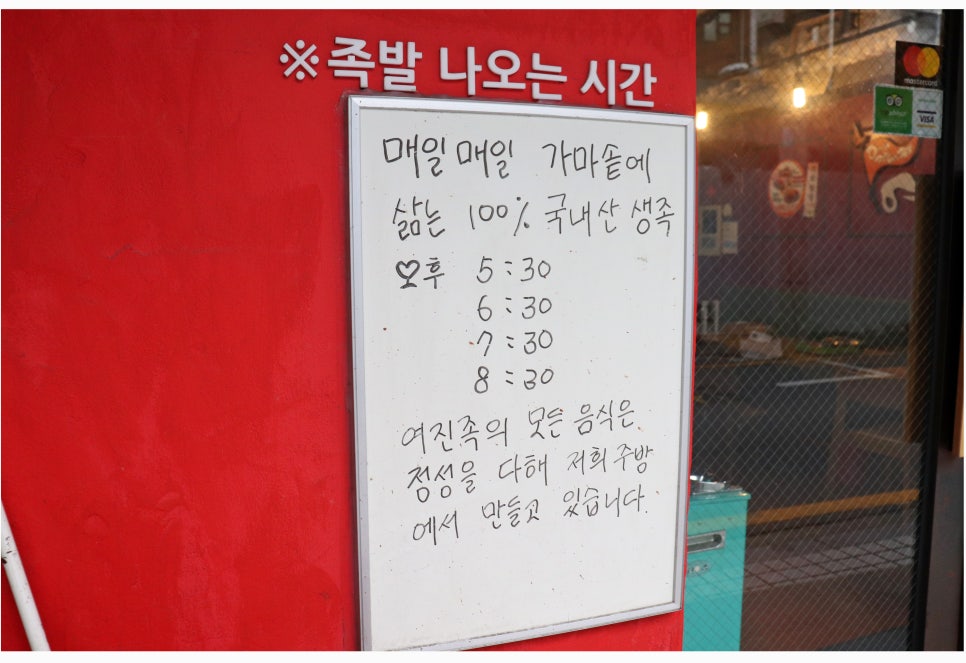 ※족발 나오는 시간
매일매일 가마솥에
삶는 100% 국내산 생족
오후 5:30
6:30
7:30
8:30
여진족의 모든 음식은
정성을 다해 저희 주방
에서 만들고 있습니다.
mastercard
VISA